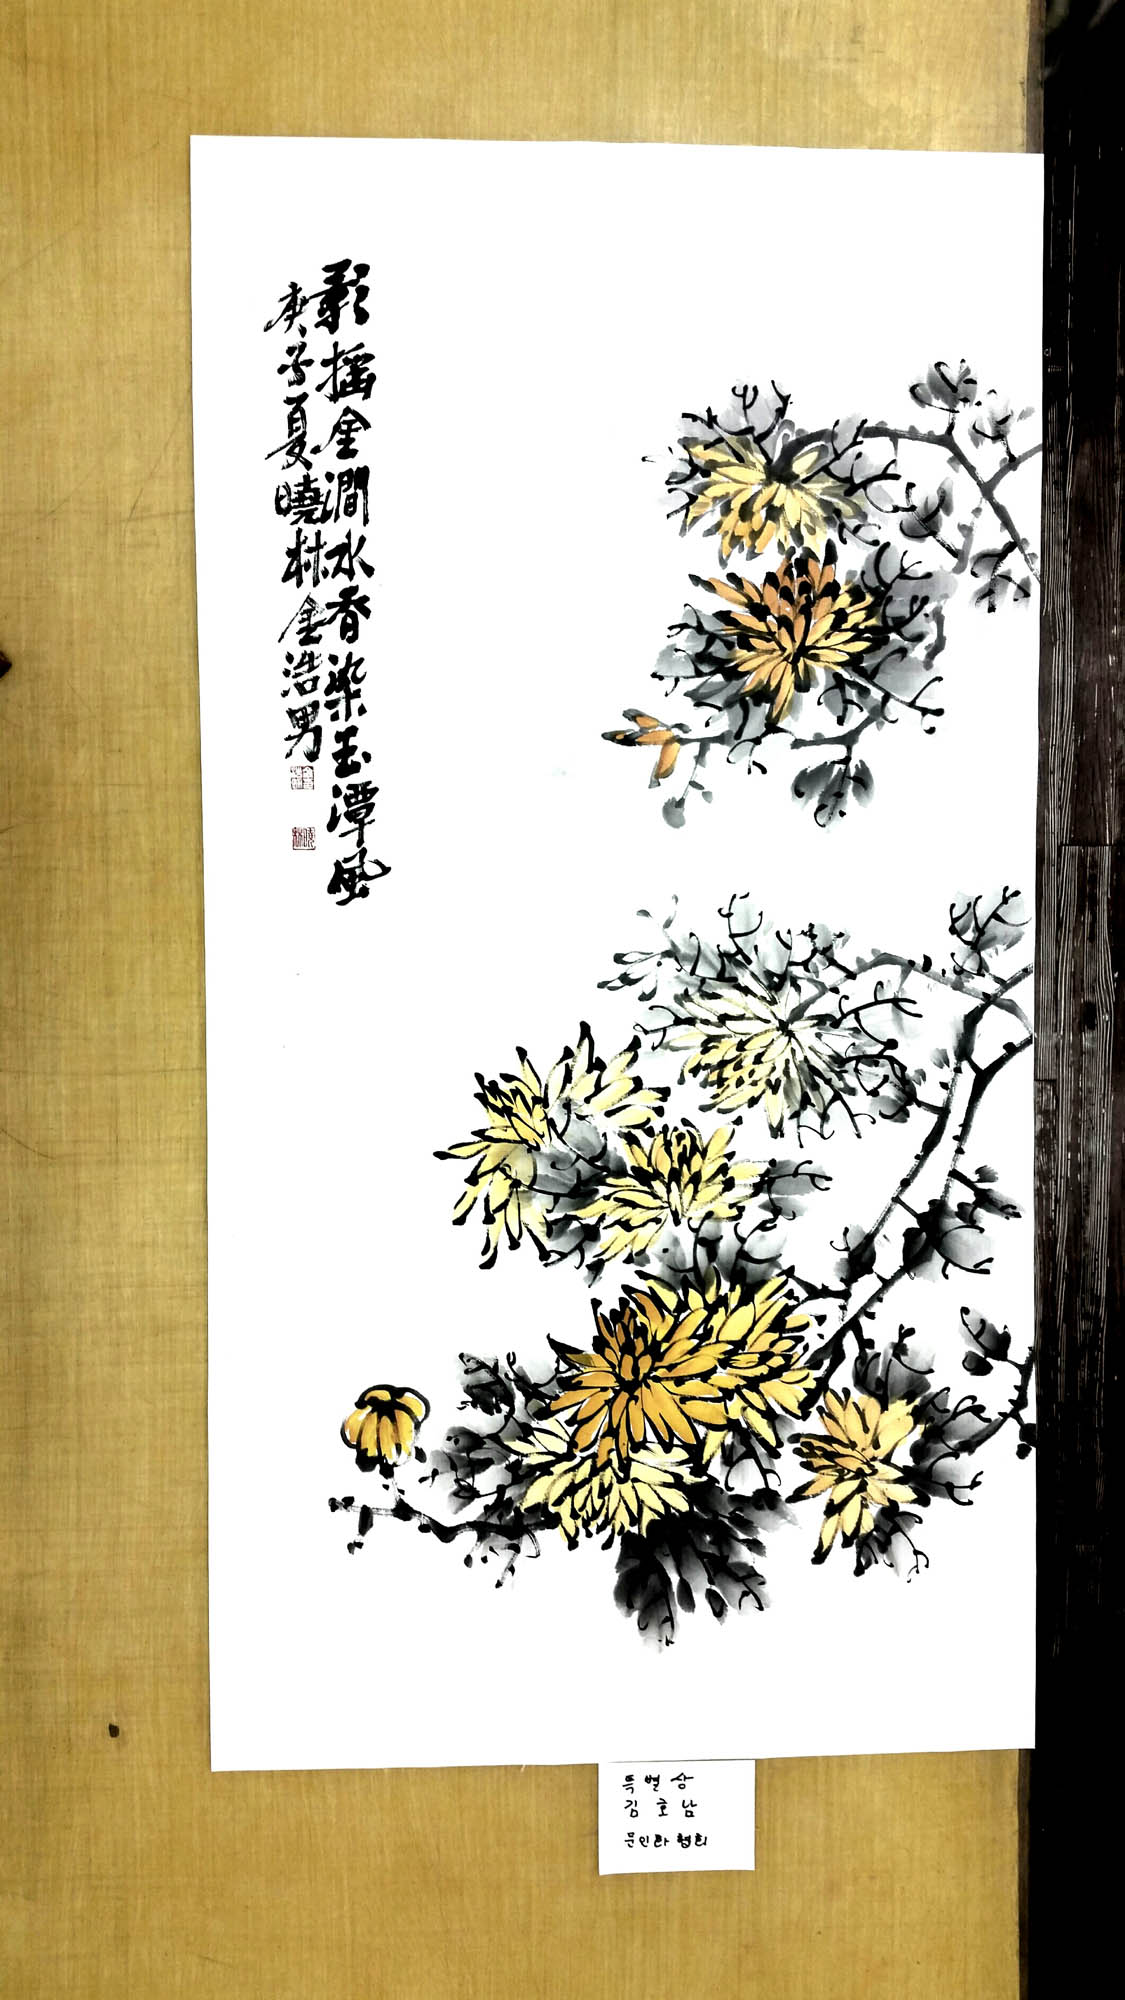 影搖金澗水香染玉潭風
庚子夏曉林金浩男
특별상
김호남
문인화협회